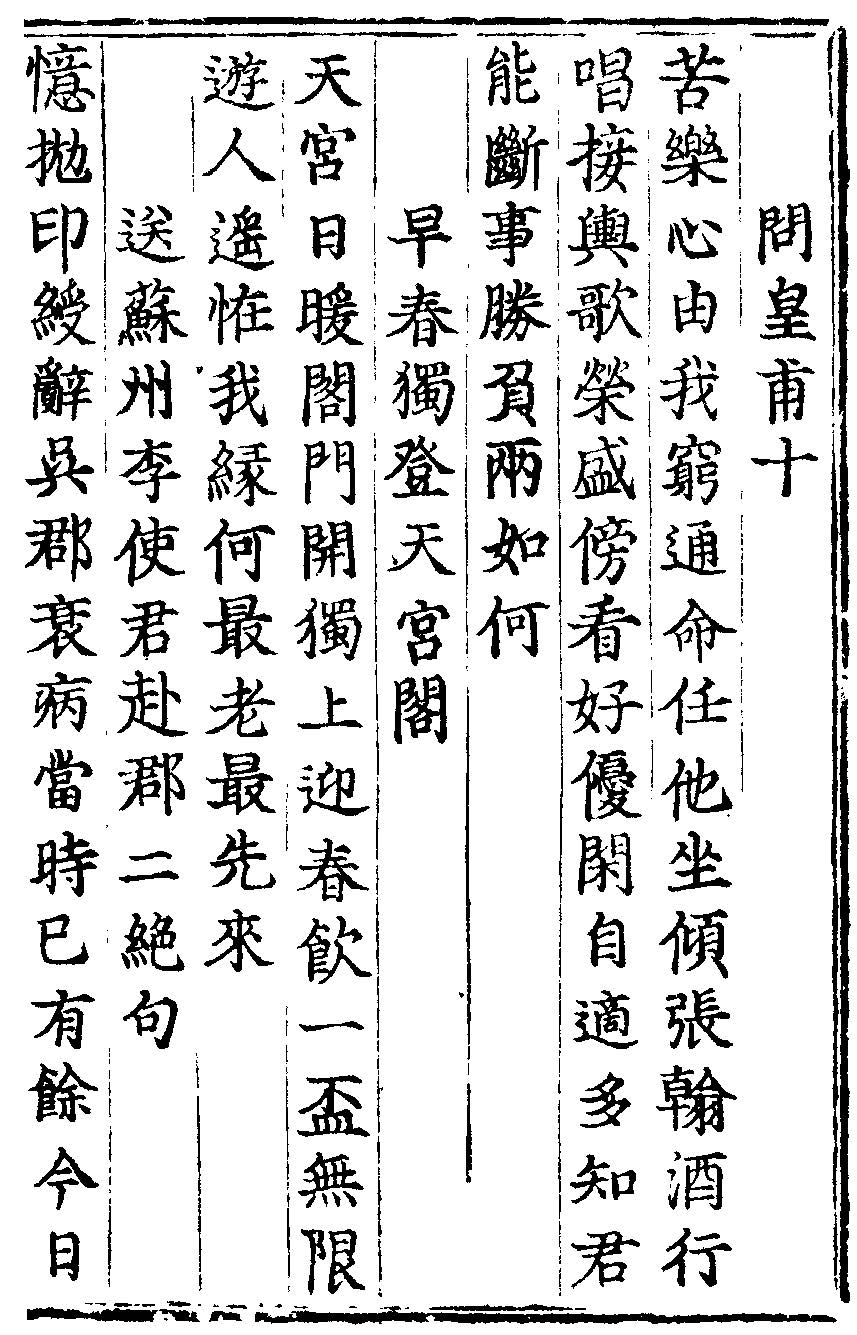 問皇甫十
苦樂心由我窮通命任他坐傾張翰酒行
唱接輿歌榮盛傍看好優閑自適多知君
能斷事勝負兩如何
早春獨登天宮閣
天宮日暖閣門開獨上迎春飲一盃無限
遊人遥恠我緣何最老最先來
送蘇州李使君赴郡二絕句
憶拋印綬辭吳郡衰病當時已有餘今日